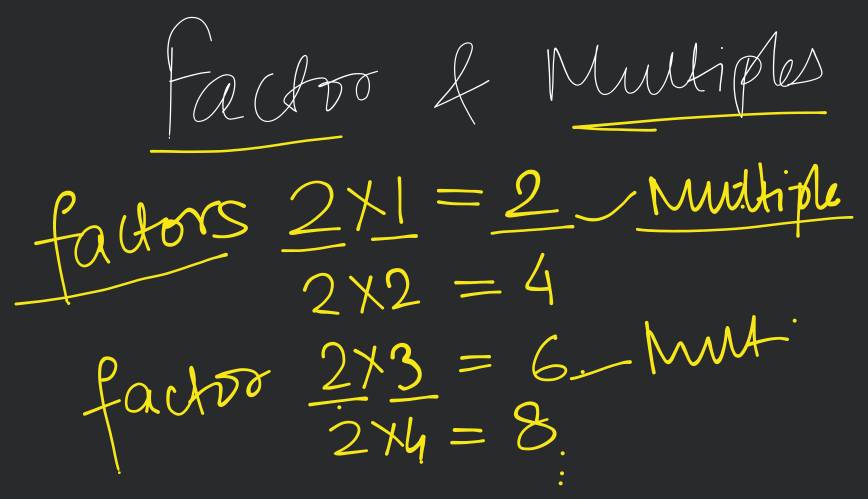 Factor & Multiples
factors 2×1 = 2 Multiple
2×2 = 4
factor 2×3 = 6 Mult.
2×4 = 8